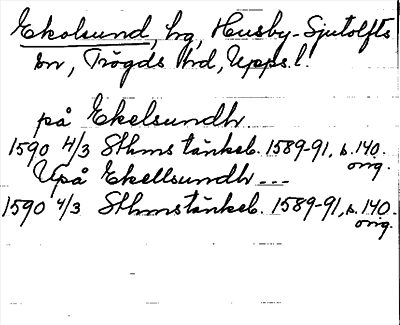 Ekolsund, hg, Husby-Sjutolfts
sn, Trögds hd, Upps. l.
på Ekelsundh.
1590 4/3 Sthms tänkeb. 1589-91, s. 140.
orig.
Upå Ekellsundh ---
1590 4/3 Sthms tänkeb. 1589-91, s. 140.
orig.